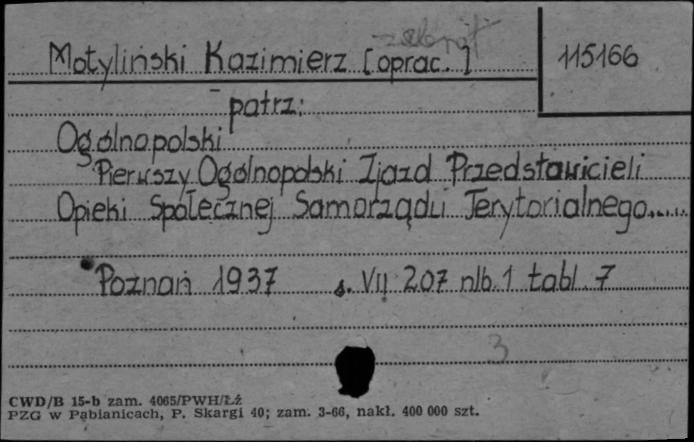 Motyliński Kazimierz [oprac.]
115166
patrz:
Ogólnopolski
Pierwszy Ogólnopolski Zjazd Przedstawicieli
Opieki Społecznej Samorządu Terytorialnego......
Poznań 1937 s. VII 207 nlb. 1 tabl. 7
3
CWD/B 15-b zam. 4065/PWH/Łź
PZG w Pabianicach, P. Skargi 40; zam. 3-66, nakł. 400 000 szt.